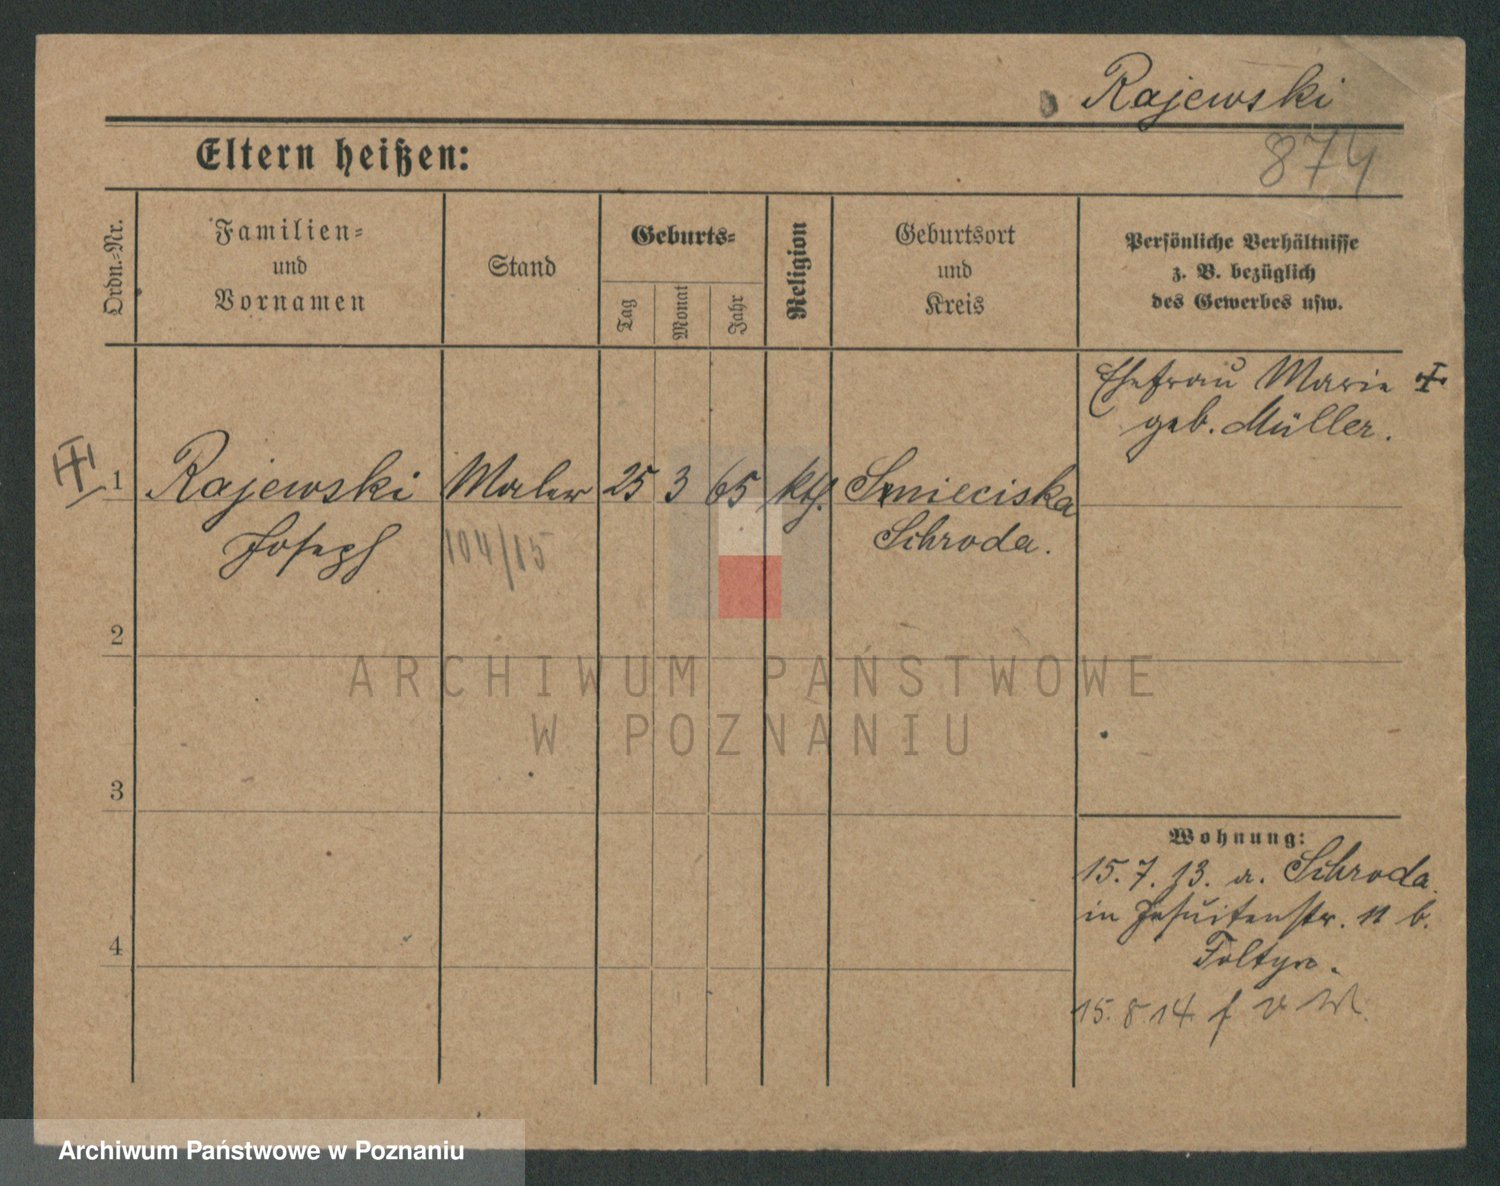 Rajewski
874
Eltern heißen:
Ordn.-Nr.
Familien-
und
Vornamen
Stand
Geburts-
Tag
Monat
Jahr
Religion
Geburtsort
und
Kreis
Persönliche Verhältnisse
z. B. bezüglich
des Gewerbes usw.
Ehefrau Marie
geb. Müller.
1 Rajewski Maler 25 3 65 kth. Smieciska
Joseph 104/15 Schroda.
2
3
4
Wohnung:
15.7.13. a. Schroda
in Jesuitenstr. 11 b.
Foltyn.
15.8.14 f v W.
ARCHIWUM PAŃSTWOWE
W POZNANIU
Archiwum Państwowe w Poznaniu